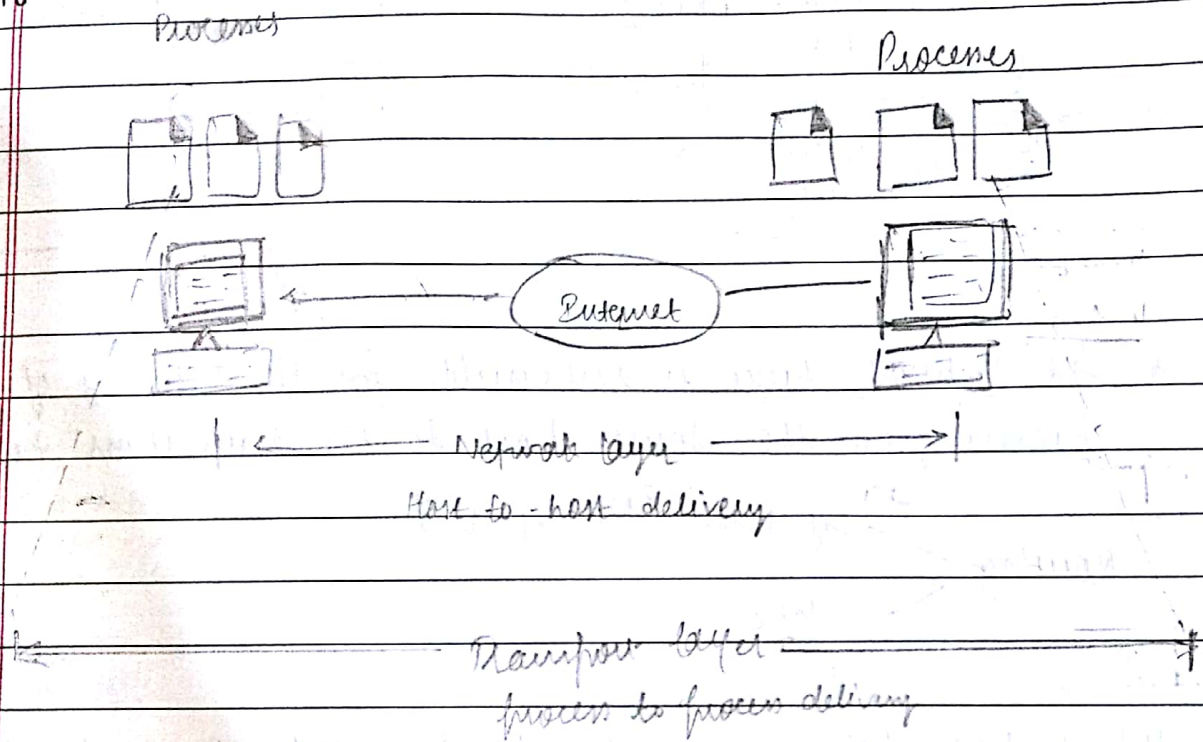 Processes
Processes
Internet
Network layer
Host to - host delivery
Transport layer
process to process delivery